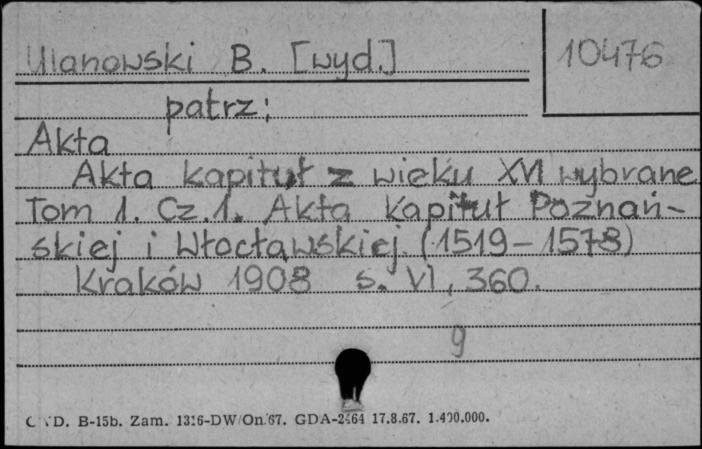 Ulanowski B. [wyd.]
10476
patrz:
Akta
Akta kapituł z wieku XVI wybrane
Tom 1. Cz. 1. Akta Kapituł Poznań-
skiej i Włocławskiej. (1519-1578)
Kraków 1908 s. VI, 360.
9
D. B-15b. Zam. 1316-DW/On/67. GDA-2464 17.8.67. 1.400.000.